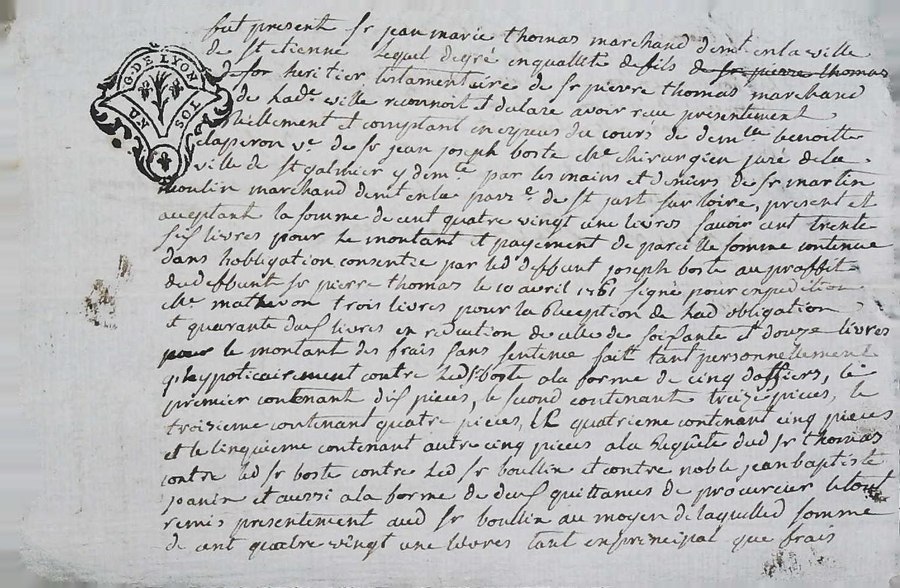 fut present Sr jean marie thomas marchand demt en la ville
de St etienne lequel degré en qualité de fils de sr pierre thomas
G. DE LYON
UN SOL
de son heritier testamentaire de Sr pierre thomas marchand
de lade ville reconnoit et declare avoir reçu presentement
reellement et comptant en espèces du cours de demlle benoitte
claperon ve de Sr jean joseph boste Me chirurgien juré de la
ville de St galmier y demte par les mains et deniers de Sr martin
moulin marchand demt en la parse de St just sur loire, present et
acceptant la somme de cent quatre vingt une livres savoir cent trente
six livres pour le montant et payement de pareille somme contenue
dans lobligation consentie par led deffunt joseph boste au proffit
dud deffunt Sr pierre thomas le 10 avril 1761 signé pour expedition
Me mathevon trois livres pour la Reception de lad obligation
et quarante deux livres en reduction de celle de soixante et douze livres
pour le montant des frais sans sentence fait tant personnellement
qhypoticairement contre led Sr boste a la forme de cinq dossiers, le
premier contenant dix pieces, le second contenant treize pieces, le
troizieme contenant quatre pieces, le quatrieme contenant cinq pieces
et le cinquieme contenant autre cinq pieces a la Requête dud Sr thomas
contre led Sr boste contre led Sr boullin et contre noble jean baptiste
janin et aussi a la forme de deux quittances de procureur le tout
remis presentement aud Sr boullin au moyen de laquelled somme
de cent quatre vingt une livres tant en principal que frais